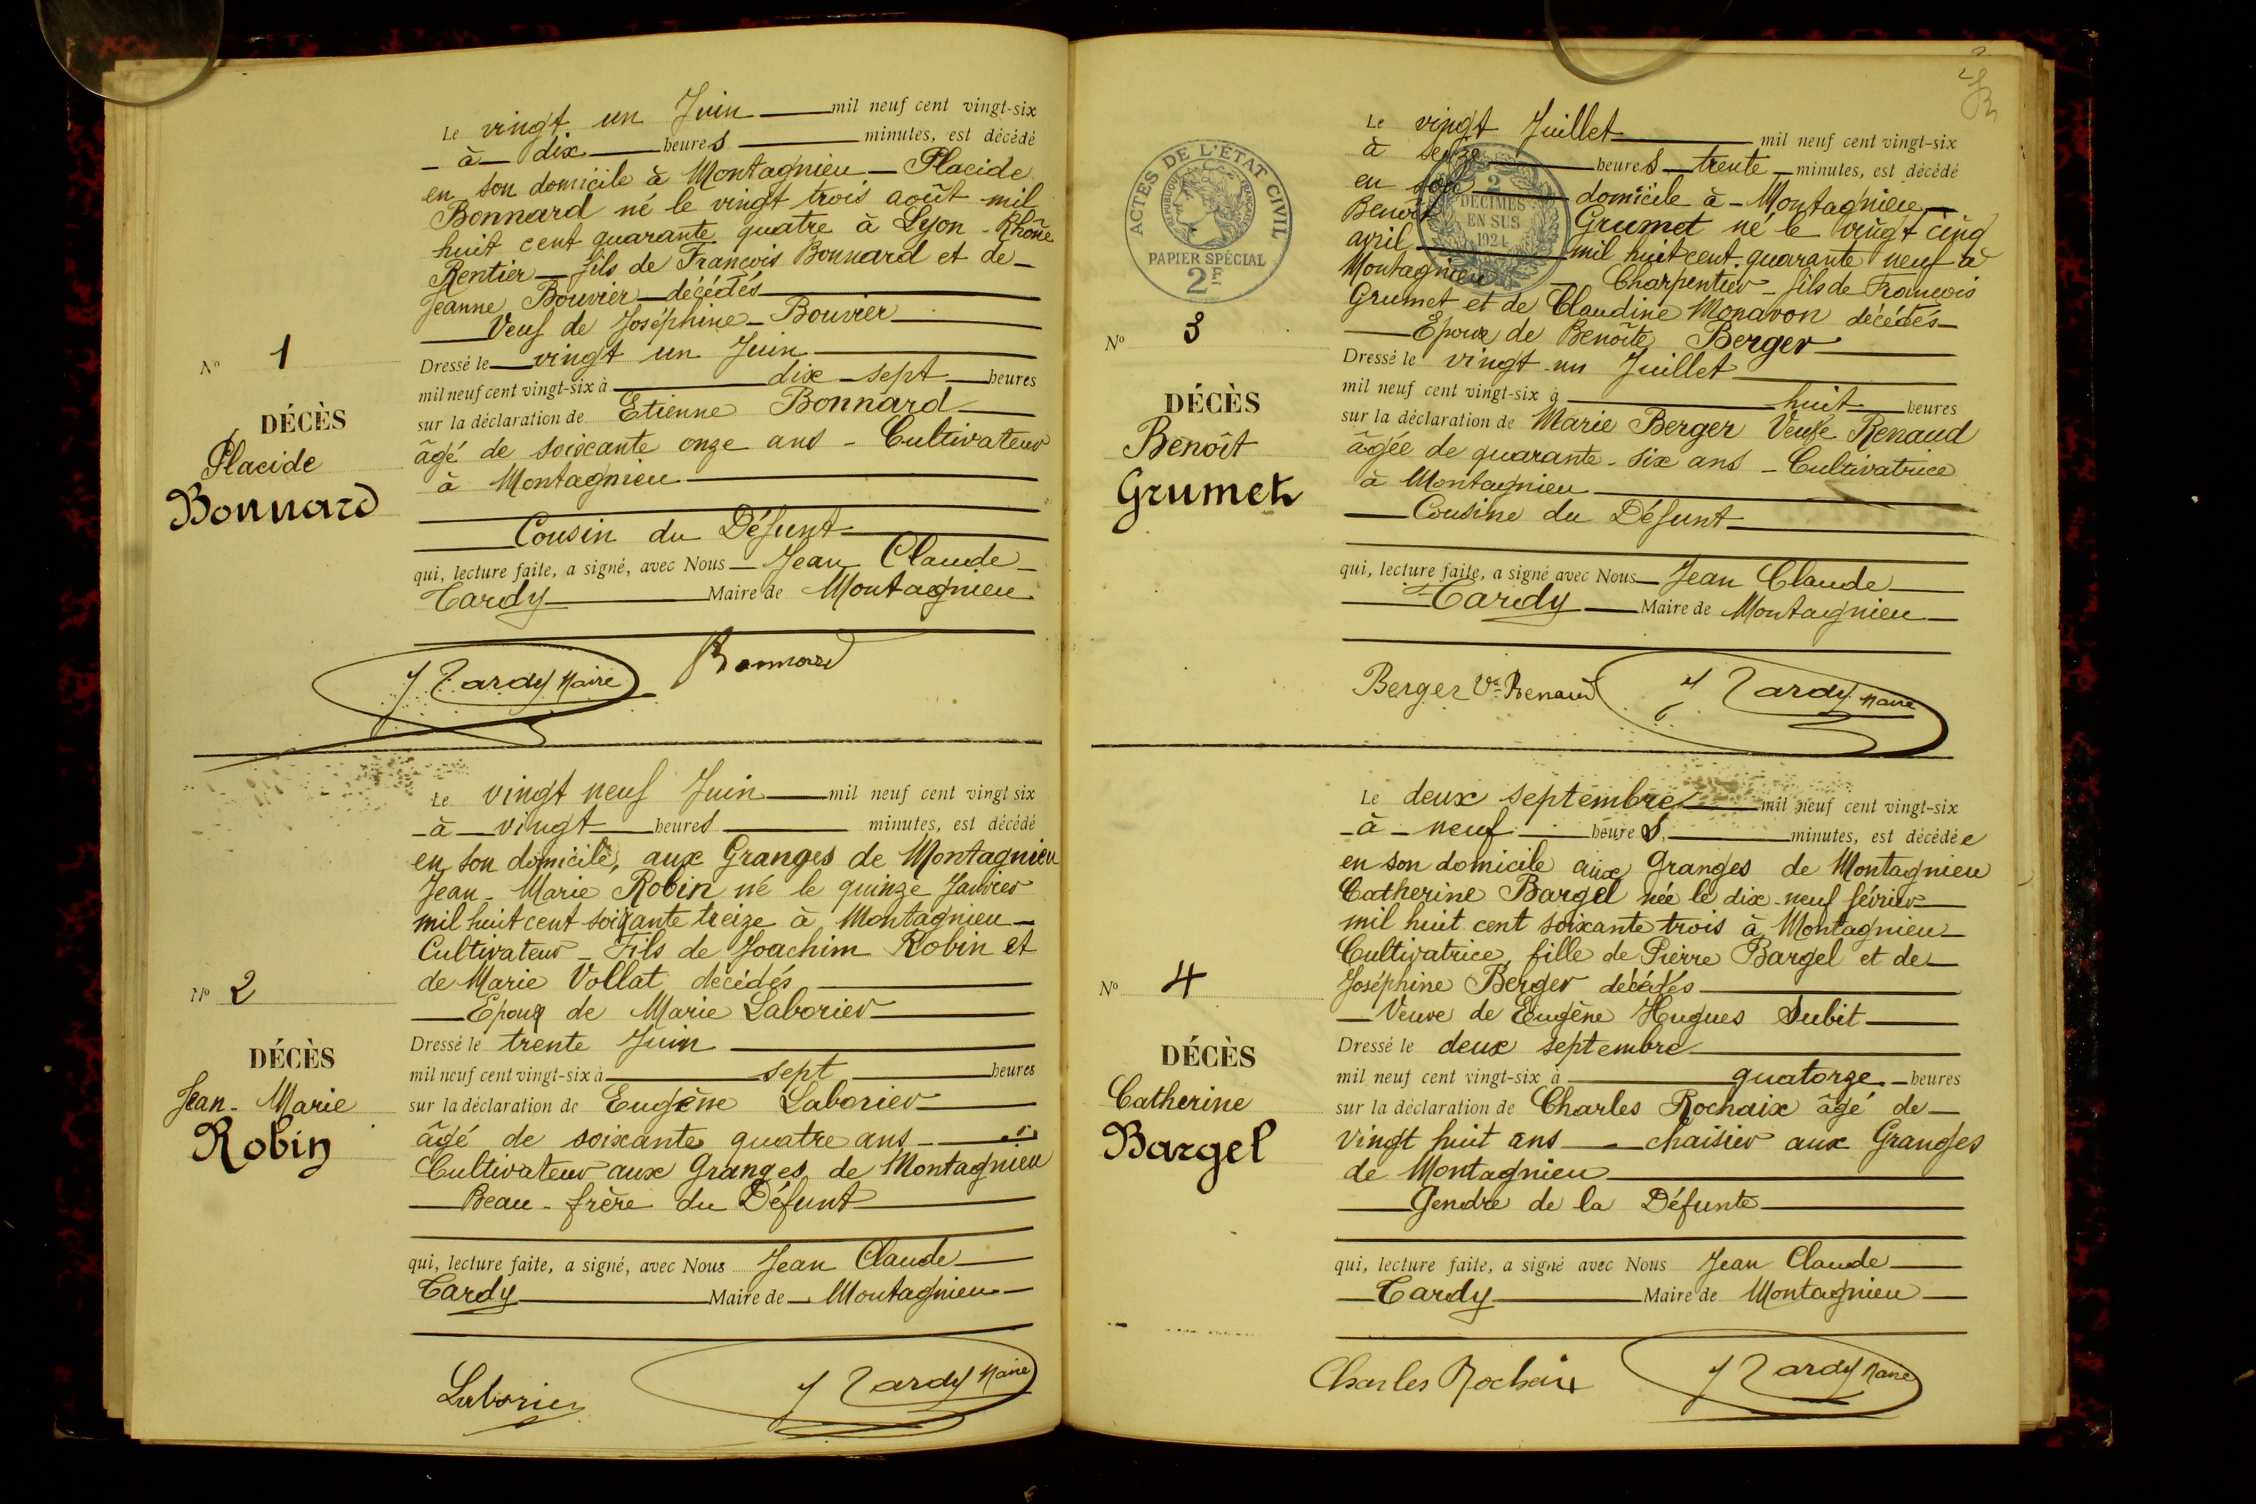 Le vingt un Juin mil neuf cent vingt-six
à dix heures minutes, est décédé
en son domicile à Montagnieu Placide
Bonnard né le vingt trois août mil
huit cent quarante quatre à Lyon - Rhône
Rentier fils de François Bonnard et de
Jeanne Bouvier décédés
Veuf de Joséphine Bouvier
N° 1
Dressé le vingt un Juin
mil neuf cent vingt-six à dix sept heures
DÉCÈS
sur la déclaration de Etienne Bonnard
Placide
âgé de soixante onze ans - Cultivateur
Bonnard
à Montagnieu
Cousin du Défunt
qui, lecture faite, a signé, avec Nous Jean Claude
Tardy Maire de Montagnieu
J Tardy Maire Bonnard
Le vingt neuf Juin mil neuf cent vingt six
à vingt heures minutes, est décédé
en son domicile, aux Granges de Montagnieu
Jean - Marie Robin né le quinze Janvier
mil huit cent soixante treize à Montagnieu
Cultivateur - Fils de Joachim Robin et
de Marie Vollat décédés
N° 2
Epoux de Marie Laborier
Dressé le trente Juin
DÉCÈS
mil neuf cent vingt-six à sept heures
Jean - Marie
sur la déclaration de Eugène Laborier
Robin
âgé de soixante quatre ans
Cultivateur aux Granges de Montagnieu
Beau - frère du Défunt
qui, lecture faite, a signé, avec Nous Jean Claude
Tardy Maire de Montagnieu
Laborier J Tardy Maire
ACTES DE L'ÉTAT CIVIL
RÉPUBLIQUE FRANÇAISE
PAPIER SPÉCIAL
2F
2
DÉCIMES
EN SUS
1924
Le vingt Juillet mil neuf cent vingt-six
à seize heures trente minutes, est décédé
en son domicile à Montagnieu
Benoît Grumet né le vingt cinq
avril mil huit cent quarante neuf à
Montagnieu Charpentier - fils de François
Grumet et de Claudine Monavon décédés
N° 3
Epoux de Benoîte Berger
Dressé le vingt un Juillet
DÉCÈS
mil neuf cent vingt-six à huit heures
Benoît
sur la déclaration de Marie Berger Veuve Renaud
Grumet
âgée de quarante - six ans - Cultivatrice
à Montagnieu
Cousine du Défunt
qui, lecture faite, a signé avec Nous Jean Claude
Tardy Maire de Montagnieu
Berger Ve Renaud J Tardy Maire
Le deux septembre mil neuf cent vingt-six
à neuf heures minutes, est décédée
en son domicile aux Granges de Montagnieu
Catherine Bargel née le dix - neuf février
mil huit cent soixante trois à Montagnieu
Cultivatrice, fille de Pierre Bargel et de
N° 4
Joséphine Berger décédés
Veuve de Eugène Hugues Subit
DÉCÈS
Dressé le deux septembre
Catherine
mil neuf cent vingt-six à quatorze heures
Bargel
sur la déclaration de Charles Rochaix âgé de
vingt huit ans chaisier aux Granges
de Montagnieu
Gendre de la Défunte
qui, lecture faite, a signé avec Nous Jean Claude
Tardy Maire de Montagnieu
Charles Rochaix J Tardy Maire